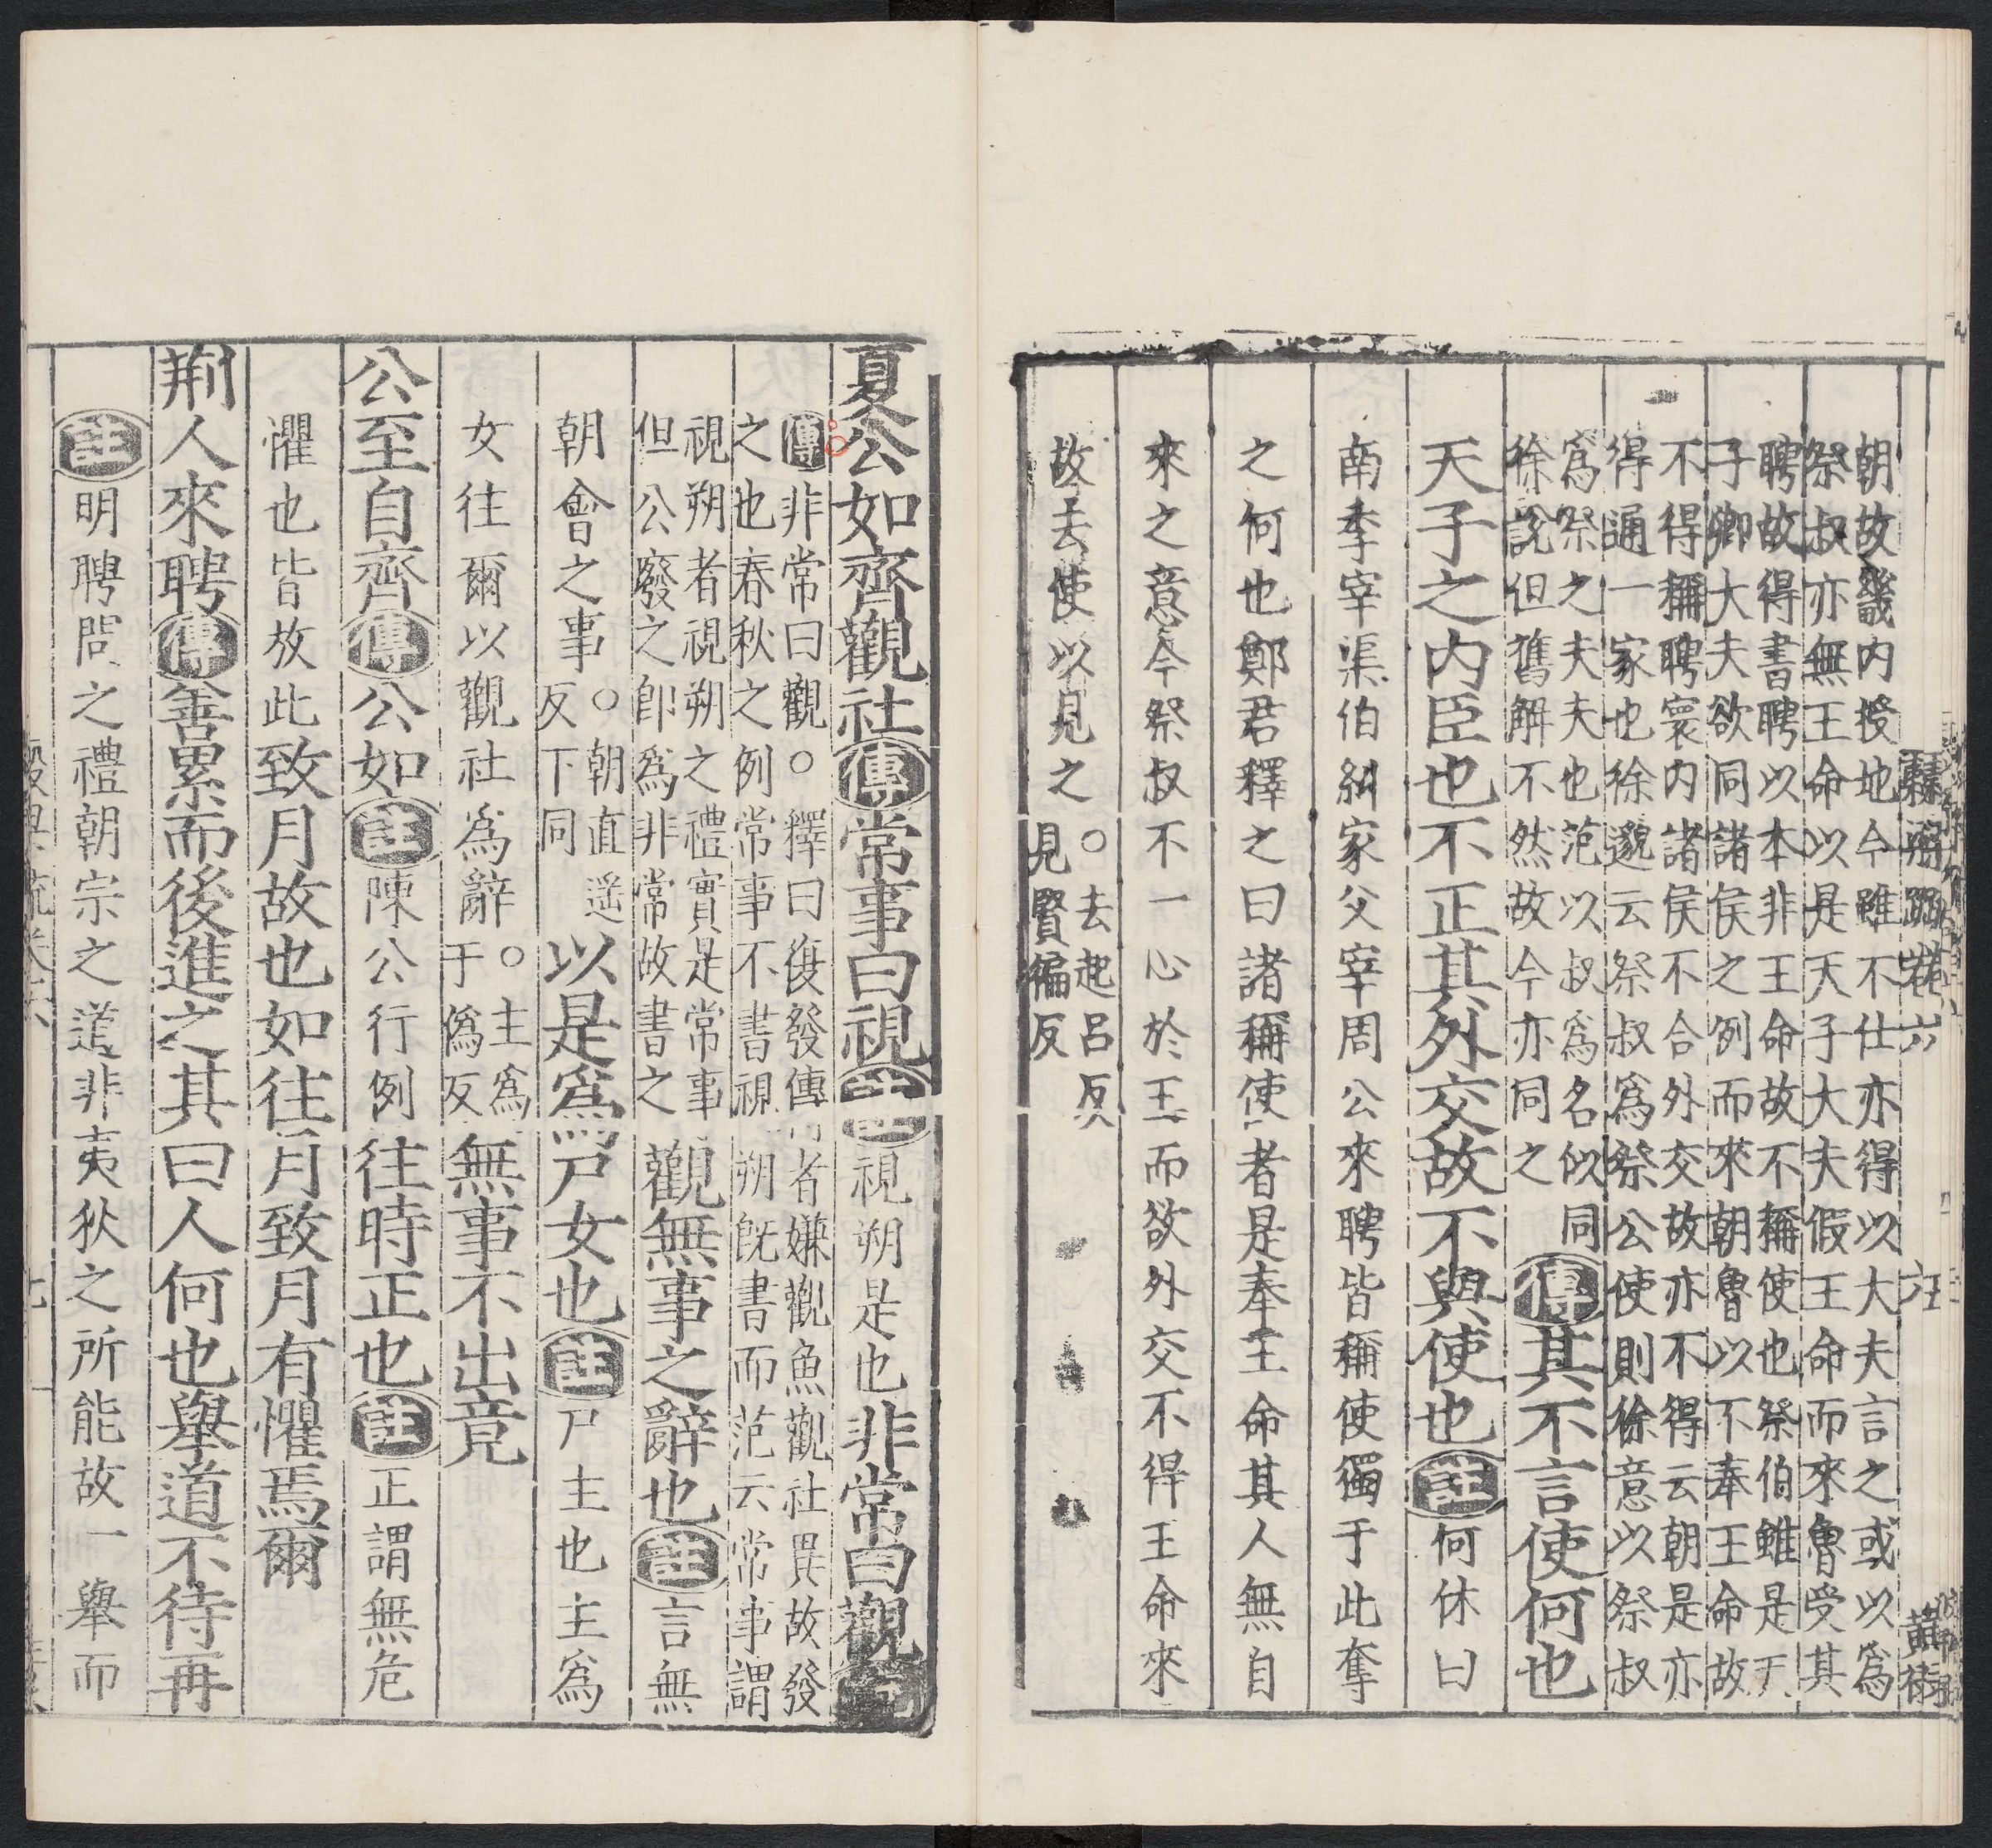 朝故畿内授地今雖不仕亦得以大夫言之或以為
祭叔亦無王命以是天子大夫假王命而來魯受其
聘故得書聘以本非王命故不稱使也祭伯雖是天
子卿大夫欲同諸侯之例而來朝魯以不奉王命故
不得稱聘寰内諸侯不合外交故亦不得云朝是亦
得通一家也徐邈云祭叔為祭公使則徐意以祭叔
為祭之夫夫也范以叔為名似同
徐說但舊解不然故今亦同之
傳其不言使何也
天子之内臣也不正其外交故不與使也註何休曰
南季宰渠伯糾家父宰周公來聘皆稱使獨于此奪
之何也鄭君釋之曰諸稱使者是奉王命其人無自
來之意今祭叔不一心於王而欲外交不得王命來
故去使以見之
○去起呂反
見賢徧反
夏公如齊觀社傳常事曰視註視朔是也非常曰觀
傳非常曰觀○釋曰復發傳者嫌觀魚觀社異故發
之也春秋之例常事不書視朔既書而范云常事謂
視朔者視朔之禮實是常事
但公廢之即為非常故書之
觀無事之辭也註言無
朝會之事
○朝直遥
反下同
以是為尸女也註尸主也主為
女往爾以觀社為辭
○主為
于偽反
無事不出竟
公至自齊傳公如註陳公行例往時正也註正謂無危
懼也皆放此致月故也如往月致月有懼焉爾
荆人來聘傳善累而後進之其曰人何也舉道不待再
註明聘問之禮朝宗之道非夷狄之所能故一舉而